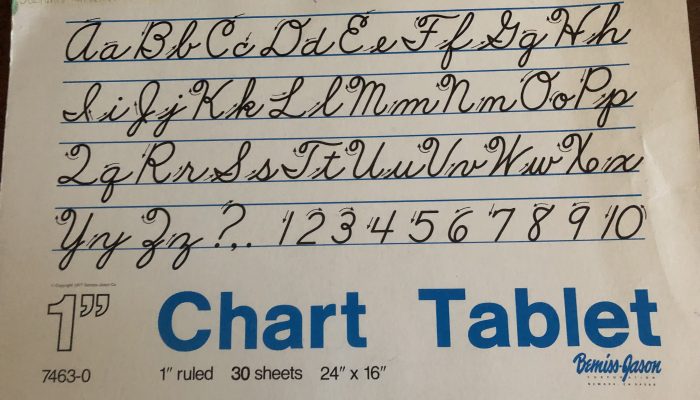 Aa Bb Cc Dd Ee Ff Gg Hh
Ii Jj Kk Ll Mm Nn Oo Pp
Qq Rr Ss Tt Uu Vv Ww Xx
Yy Zz ?,. 1 2 3 4 5 6 7 8 9 10
1” Chart Tablet
7463-0 1” ruled 30 sheets 24” x 16”
Bemiss-Jason
CORPORATION